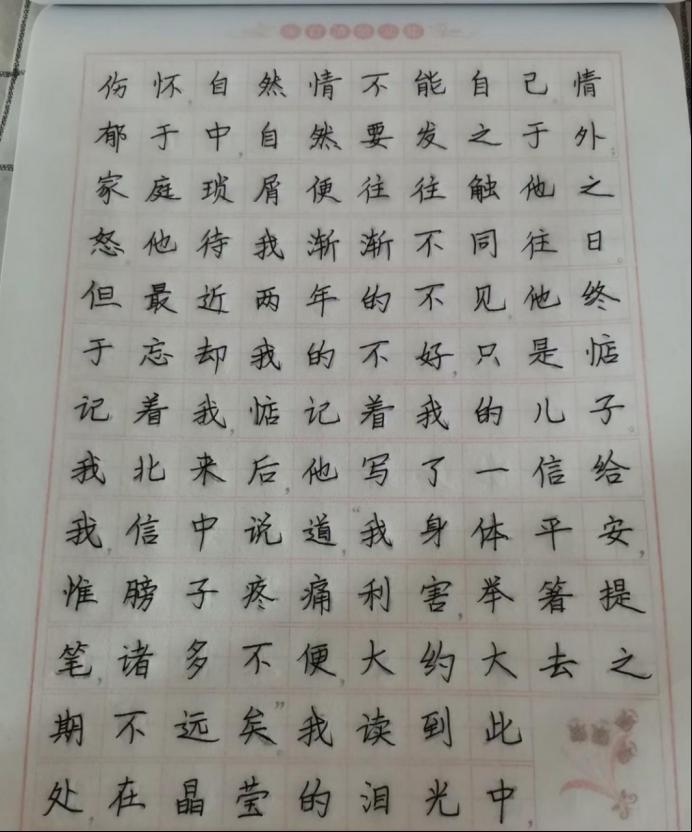 伤怀,自然情不能自已。情
郁于中,自然要发之于外;
家庭琐屑便往往触他之
怒。他待我渐渐不同往日。
但最近两年的不见,他终
于忘却我的不好,只是惦
记着我,惦记着我的儿子。
我北来后,他写了一信给
我,信中说道:“我身体平安,
惟膀子疼痛利害,举箸提
笔,诸多不便,大约大去之
期不远矣。”我读到此
处,在晶莹的泪光中,